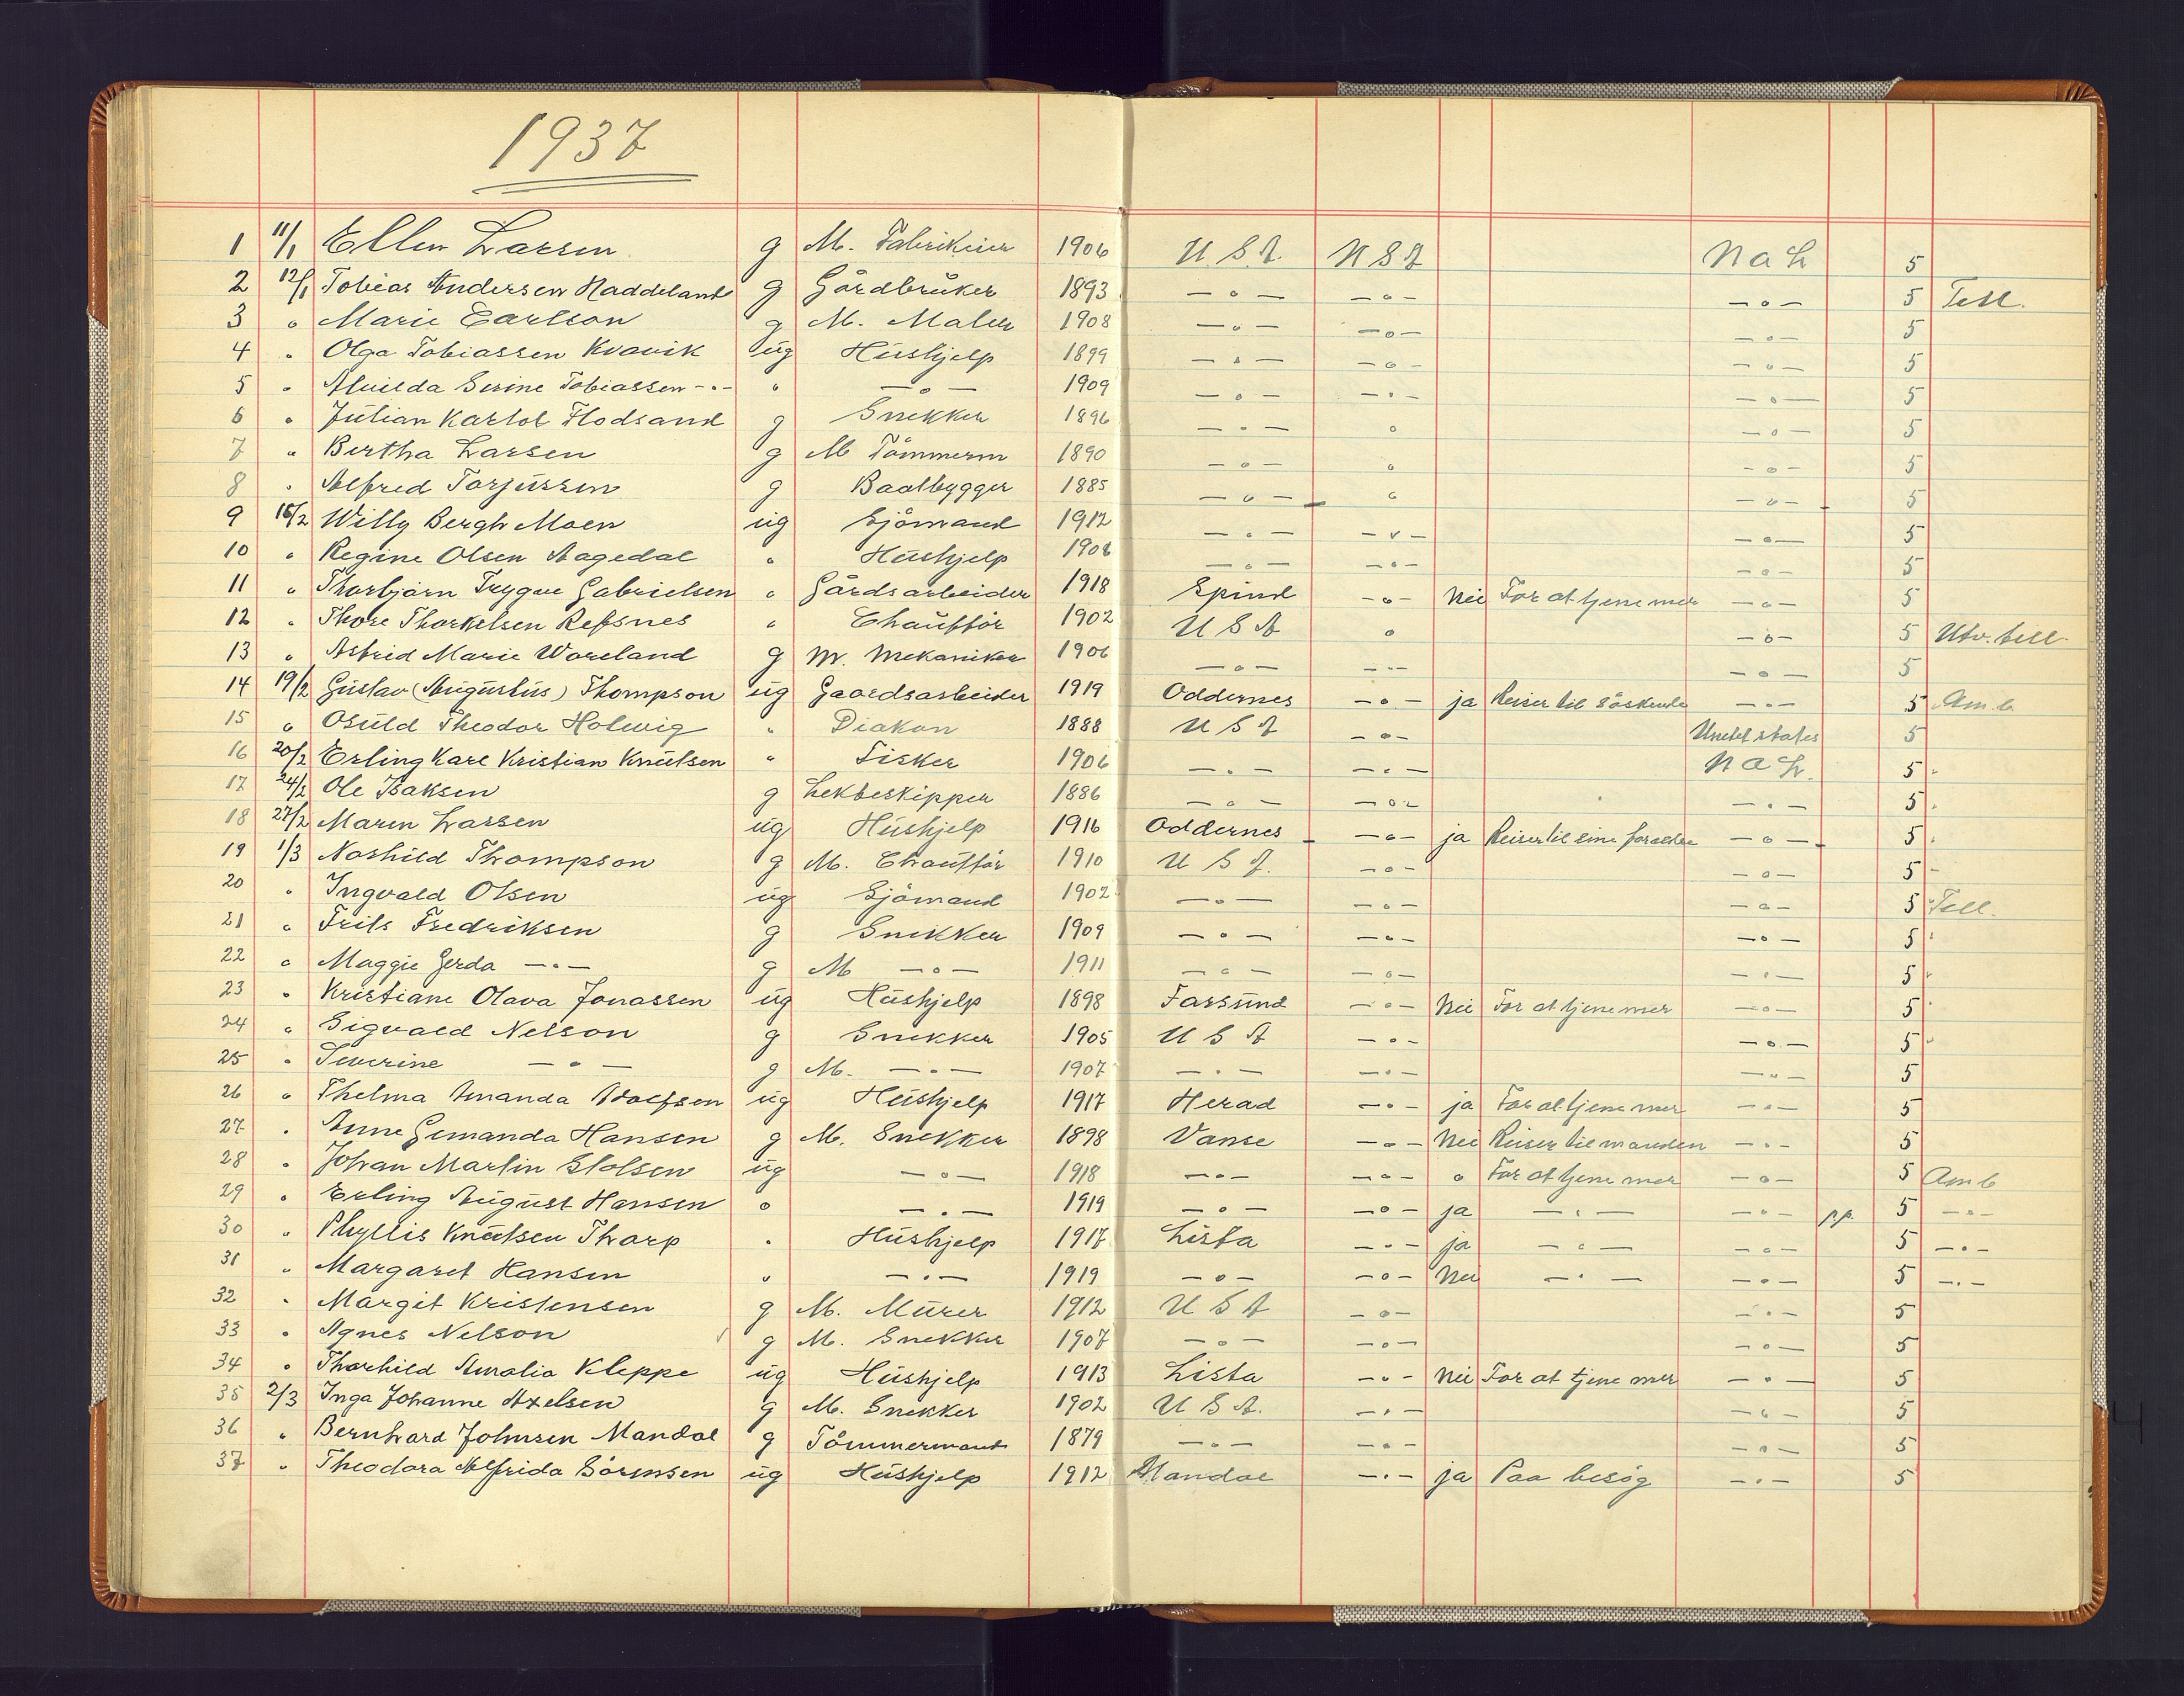 1937
1 11/1 Ellen Larsen g M. Fabrikeier 1906 U.S.A. U S A N a L 5
2 12/1 Tobias Andersen Haddeland g Gårdbruker 1893 —"— —"— —"— 5 Tell.
3 " Marie Carlson g M. Maler 1908 —"— —"— —"— 5
4 " Olga Tobiassen Kvavik ug Hushjelp 1899 —"— —"— —"— 5
5 " Alvilda Serine Tobiassen —"— " —"— 1909 —"— —"— —"— 5
6 " Julian Karlot Flodsand g Snekker 1896 —"— " —"— 5
7 " Bertha Larsen g M Tömmerm 1890 —"— " —"— 5
8 " Alfred Torjussen g Baatbygger 1885 —"— " —"— 5
9 16/2 Willy Bergh Moen ug Sjömand 1912 —"— —"— —"— 5
10 " Regine Olsen Aagedal " Hushjelp 1908 —"— —"— —"— 5
11 " Thorbjörn Trygve Gabrielsen " Gårdsarbeider 1918 Spind —"— Nei For at tjene mer —"— 5
12 " Thore Thorkelsen Refsnes " Chaufför 1902 U S A " —"— 5 Utv. tell.
13 " Astrid Marie Woreland g M. Mekaniker 1906 —"— —"— —"— 5
14 19/2 Gustav (Augustus) Thompson ug Gaardsarbeider 1919 Oddernes —"— ja Reiser til söskende —"— 5 Amb.
15 " Osuld Theodor Holwig " Diakon 1888 U S A —"— United states 5
16 20/2 Erling Kare Kristian Knutsen " Fisker 1906 —"— —"— N a L. 5
17 24/2 Ole Isaksen g Lekteskipper 1886 —"— —"— —"— 5
18 27/2 Maren Larsen ug Hushjelp 1916 Oddernes —"— ja Reiser til sine foreldre —"— 5
19 1/3 Norhild Thompson g M. Chaufför 1910 U S A. —"— —"— 5
20 " Ingvald Olsen ug Sjömand 1902 —"— —"— —"— 5 Tell.
21 " Frits Fredriksen g Snekker 1909 —"— —"— —"— 5
22 " Maggie Gerda —"— g M —"— 1911 —"— —"— —"— 5
23 " Kristiane Olava Jonassen ug Hushjelp 1898 Farsund —"— Nei For at tjene mer —"— 5
24 " Sigvald Nelson g Snekker 1905 U S A —"— —"— 5
25 " Severine —"— g M. —"— 1907 —"— —"— —"— 5
26 " Thelma Amanda Adolfsen ug Hushjelp 1917 Herad —"— ja For at tjene mer —"— 5
27 " Anne Gemanda Hansen g M. Snekker 1898 Vanse —"— Nei Reiser til manden —"— 5
28 " Johan Martin Slolsen ug —"— 1918 —"— —"— " For at tjene mer —"— 5 Amb
29 " Erling August Hansen " —"— 1919 —"— —"— ja —"— —"— p.p. 5 —"—
30 " Phyllis Knutsen Tharp " Hushjelp 1917 Lista —"— ja —"— —"— 5 —"—
31 " Margaret Hansen " —"— 1919 —"— —"— Nei —"— —"— 5 —"—
32 " Margit Kristensen g M. Murer 1912 U S A —"— —"— 5
33 " Agnes Nelson g M. Snekker 1907 —"— —"— —"— 5
34 " Thorhild Amalia Kleppe ug Hushjelp 1913 Lista —"— Nei For at tjene mer —"— 5
35 2/3 Inga Johanne Axelsen g M. Snekker 1902 U S A. —"— —"— 5
36 " Bernhard Johnsen Mandal g Tömmermand 1879 —"— —"— —"— 5
37 " Theodora Alfrida Sörensen ug Hushjelp 1912 Mandal —"— ja Paa besög —"— 5